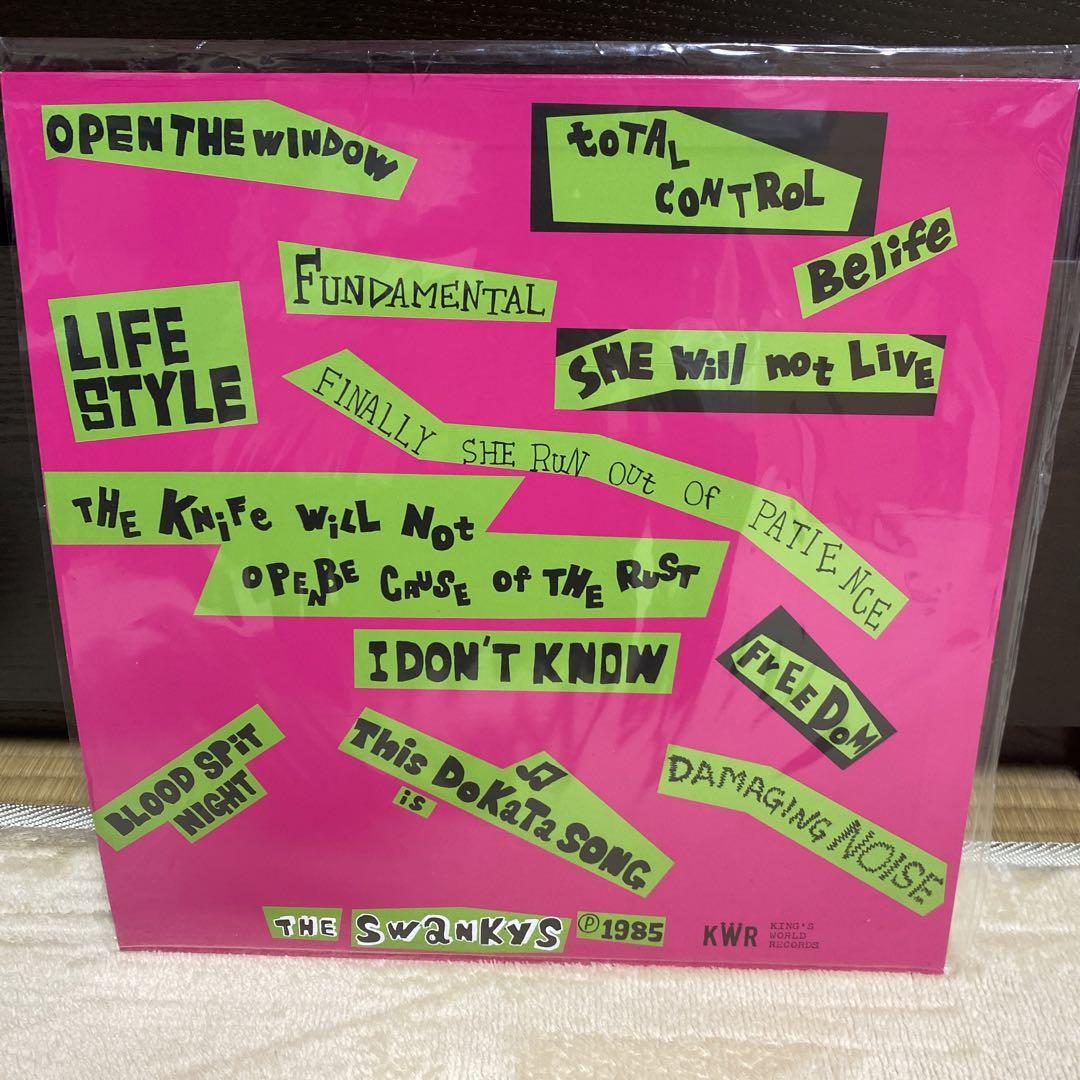 OPEN THE WINDOW
toTAL
CONTROL
Belife
FUNDAMENTAL
LIFE
STYLE
SHE Will not LIVE
FINALLY SHE RuN OUt Of PATIENCE
THE KNiFe WiLL Not
OPENBE CAUSE of THE RUST
I DON'T KNOW
FrEEDOM
BLOOD SPiT
NIGHT
This DoKaTa SONG
is
DAMAGING NOISE
THE SWANKYS Ⓟ1985
KWR
KING'S
WORLD
RECORDS